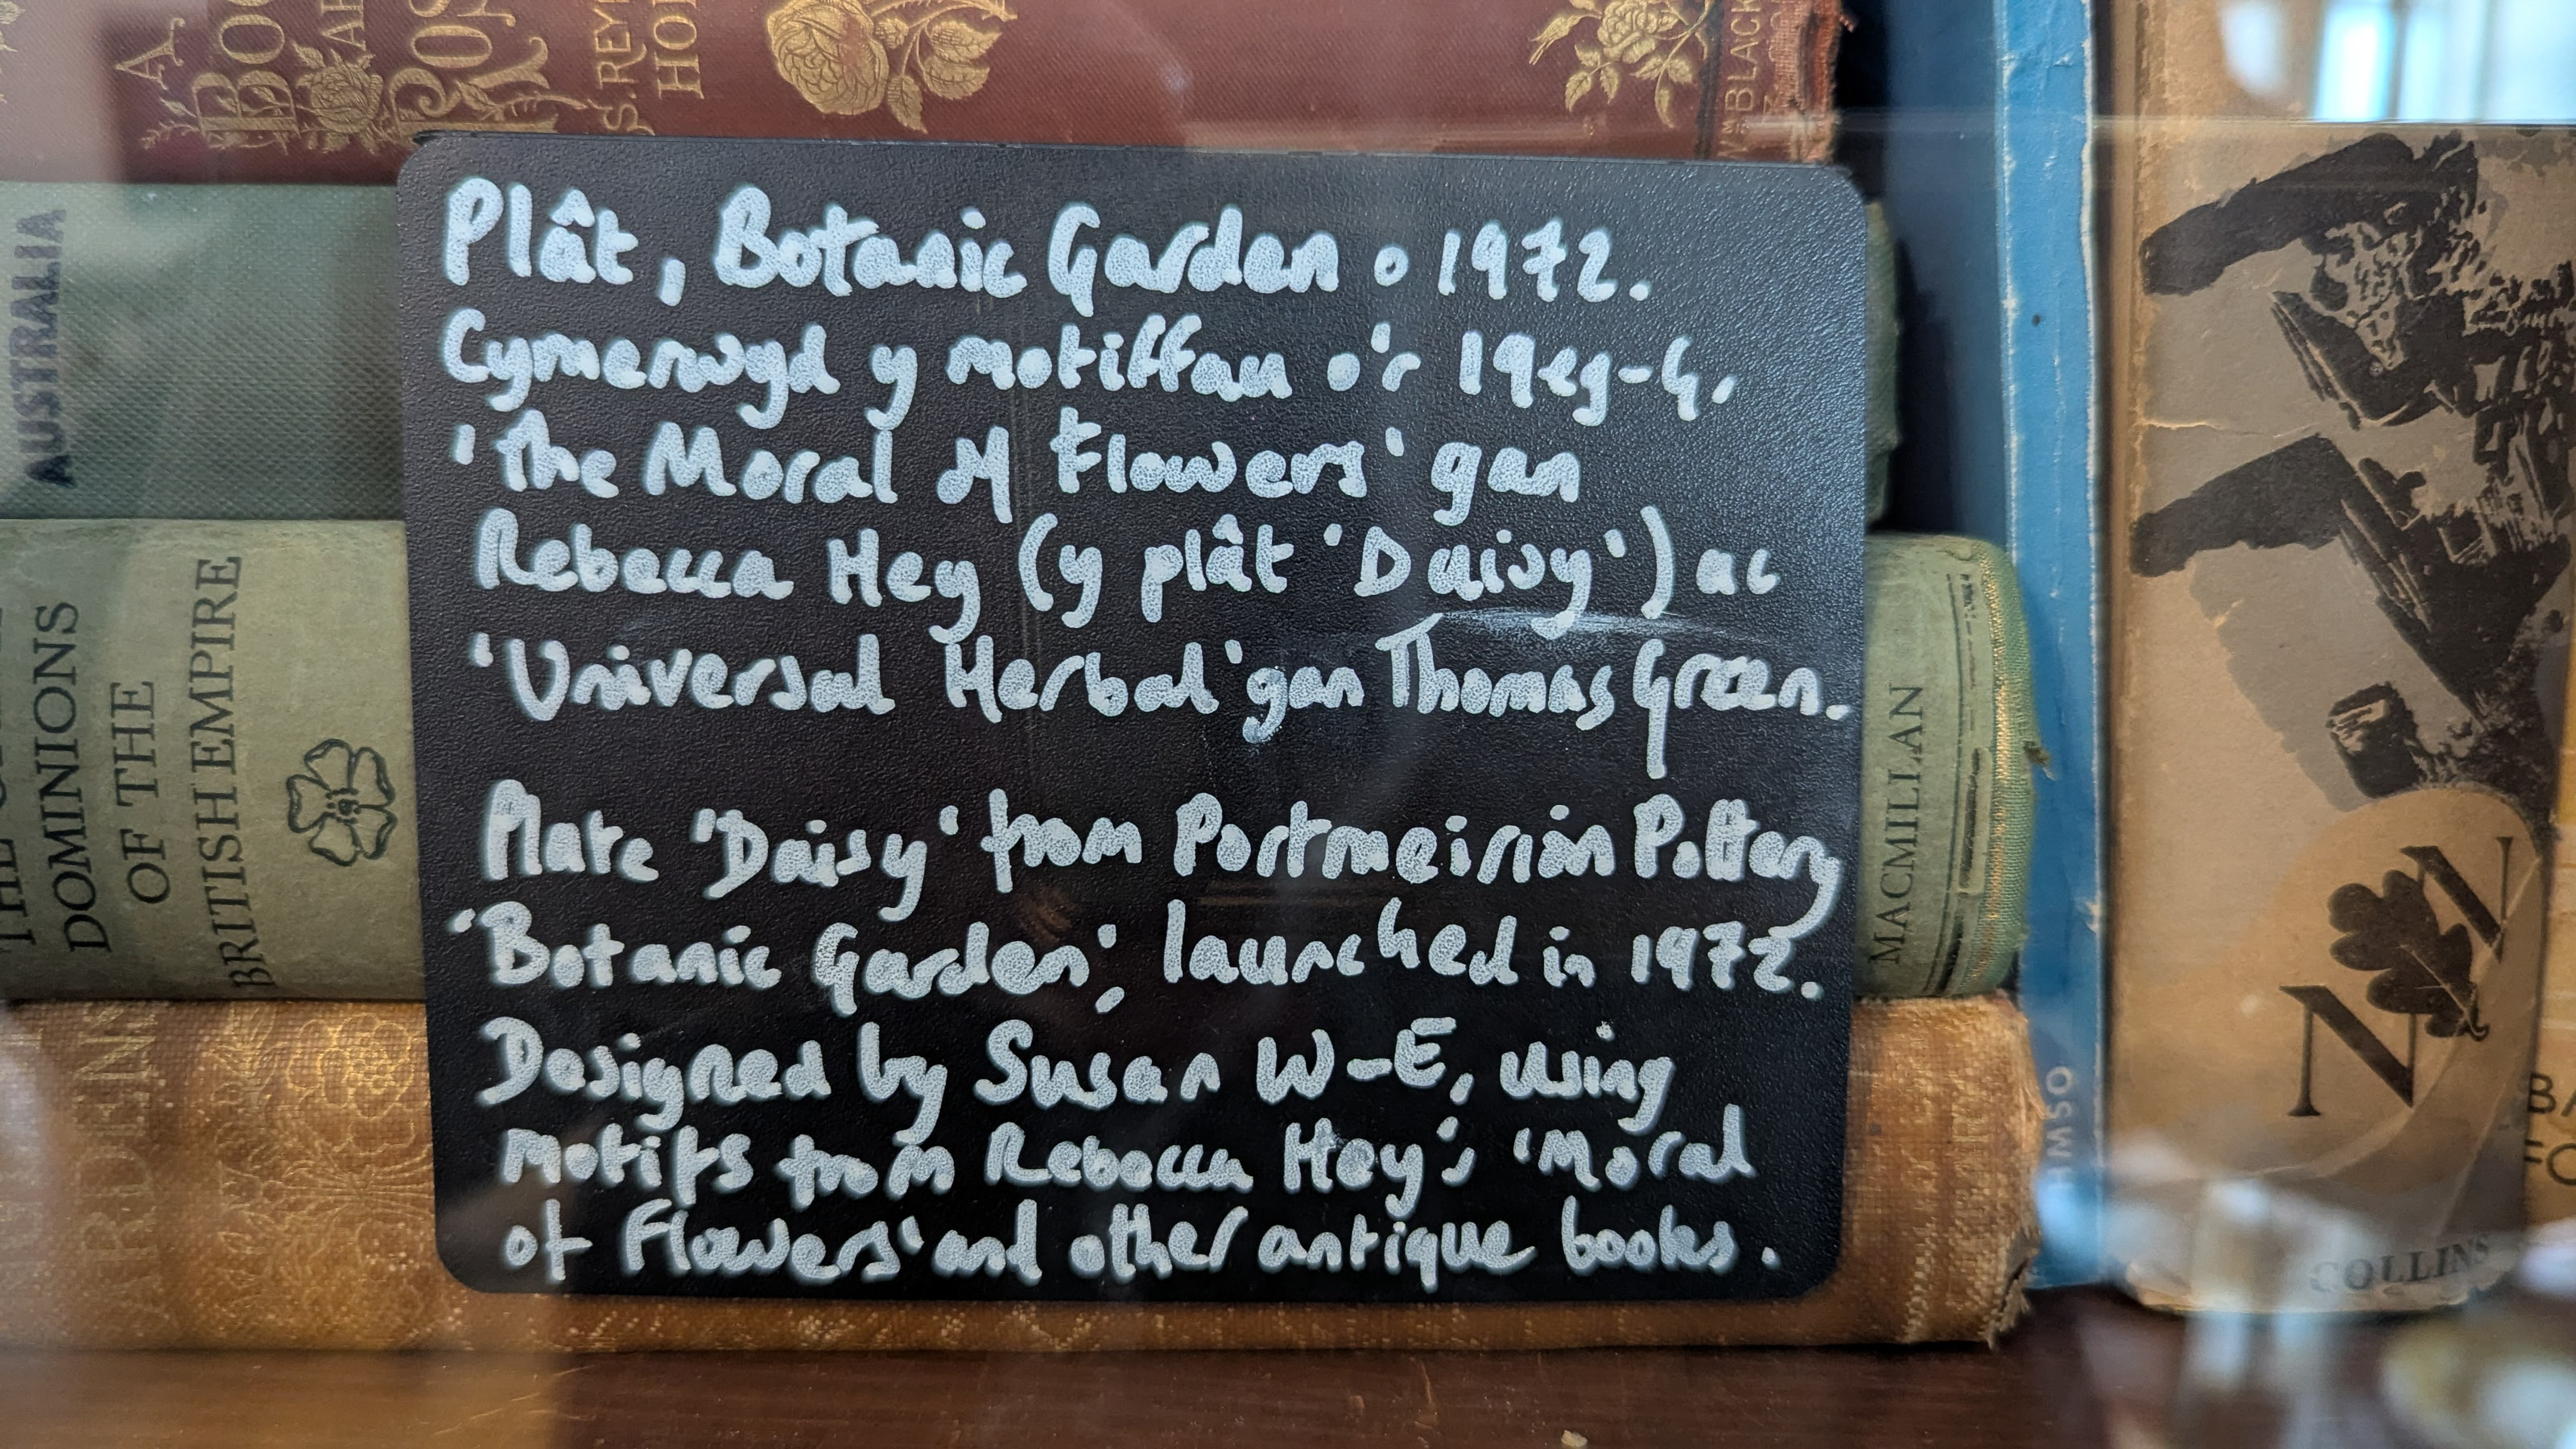 A
BOOK
ABOUT
ROSES
S. REYNOLDS
HOLE
WM BLACKWOOD
AUSTRALIA
DOMINIONS
OF THE
BRITISH EMPIRE
MACMILLAN
Plât, Botanic Garden o 1972.
Cymerwyd y motiffau o'r 19eg-G.
'The Moral of Flowers' gan
Rebecca Hey (y plât 'Daisy') ac
'Universal Herbal' gan Thomas Green.
Plate 'Daisy' from Portmeirion Pottery
'Botanic Garden', launched in 1972.
Designed by Susan W-E, using
motifs from Rebecca Hey's 'Moral
of Flowers' and other antique books.
N N
COLLINS